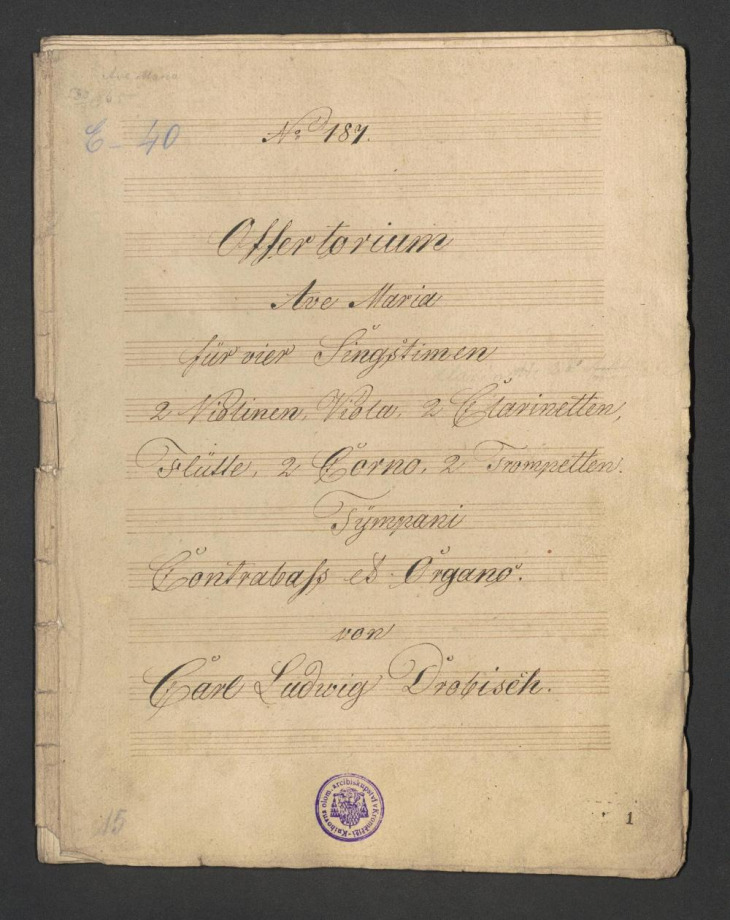 Ave Maria
E–40
No 187.
Offertorium
Ave Maria
für vier Singstimen
2 Violinen, Viola, 2 Clarinetten,
Flütte, 2 Corno, 2 Trompetten.
Tÿmpani
Contrabass et Organo.
von
Carl Ludwig Drobisch.
Knihovna olom. arcibiskupství v Kroměříži
15
1